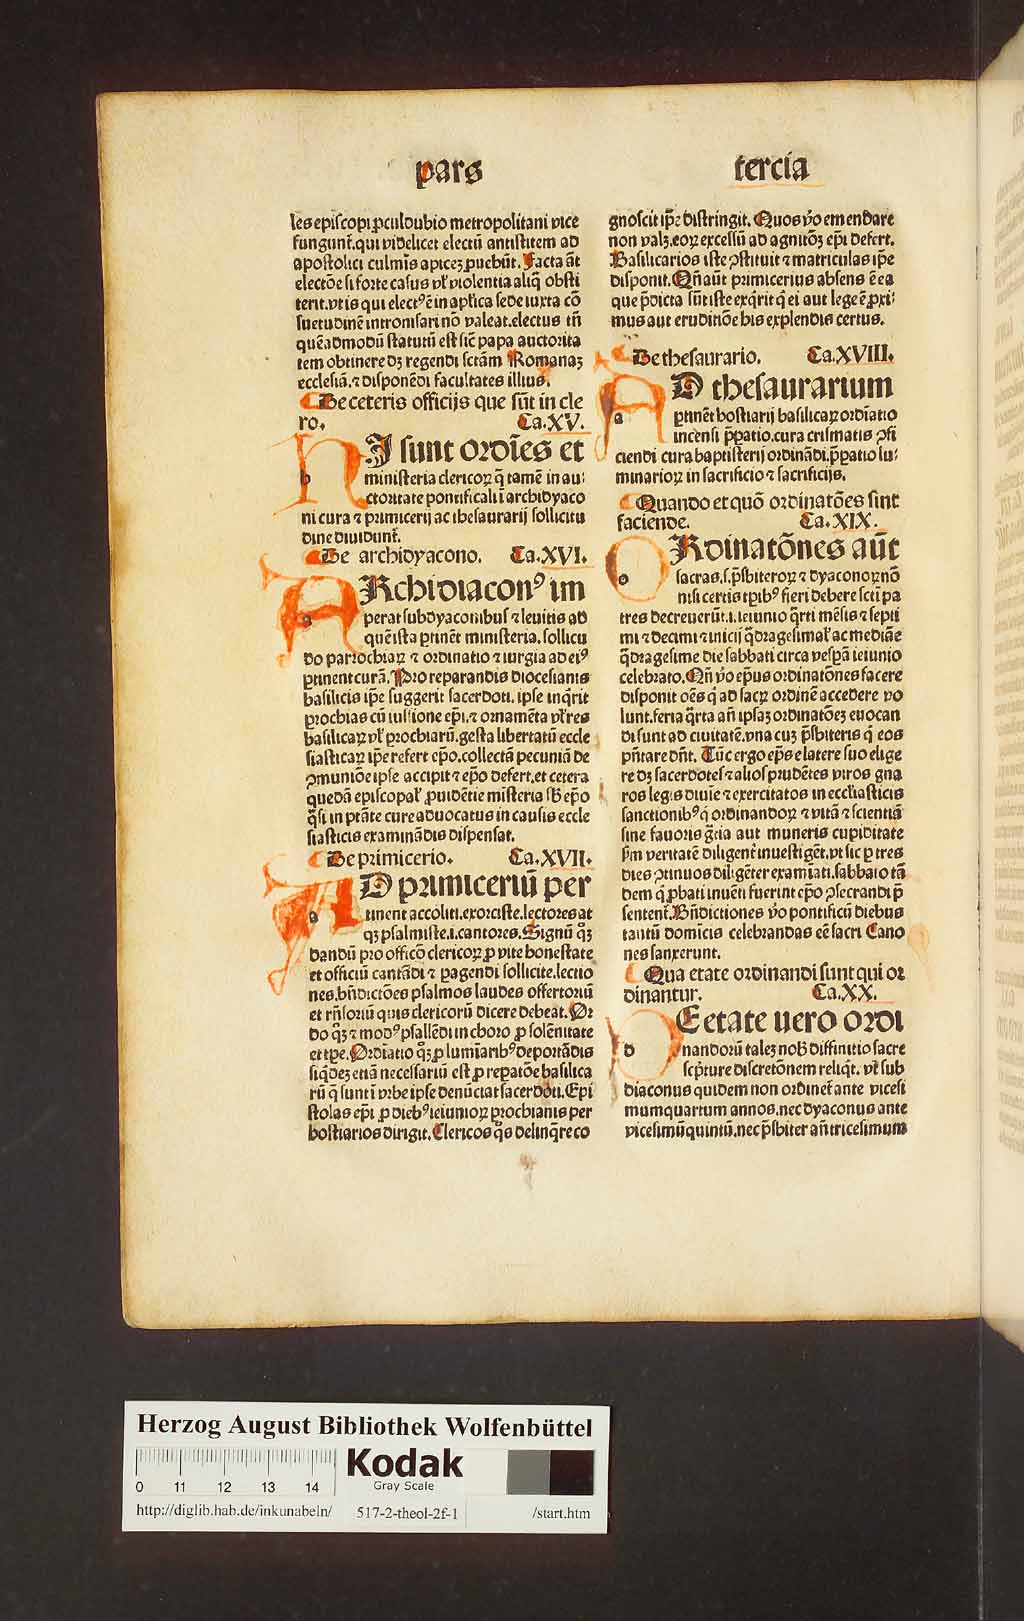 pars
tercia
les episcopi ꝓculdubio metropolitani vice
fungunt᷑.qui videlicet electū antistitem ad
apostolici culmīs apicez ꝓuehūt. Facta āt
electōe si forte casus vł violentia aliq̄ obsti
terit.vt is qui elect⁹ ē in apłica sede iuxta cō
suetudinē intronisari nō valeat.electus tn̄
quēadmodū statutū est sic̄ papa auctorita
tem obtinere dz regendi sctām Romanaz
ecclesiā.⁊ disponēdi facultates illius.
De ceteris officijs que sūt in cle
ro. Ca.XV.
h
HI sunt ordīes et
ministeria clericoꝝ q̄ tamē in au:
ctoritate pontificali ī archidyaco
ni cura ⁊ primicerij ac thesaurarij sollicitu
dine diuidunt᷑.
De archidyacono. Ca.XVI.
a
ARchidiacon⁹ im
perat subdyaconibus ⁊ leuitis ad
quē ista ꝑtinēt ministeria. sollicitu
do parrochiaꝝ ⁊ ordinatio ⁊ iurgia ad ei⁹
ꝑtinent curā. Pro reparandis diocesianis
basilicis ip̄e suggerit sacerdoti. ipse inq̄rit
prochias cū iussione ep̄i.⁊ ornamēta vł res
basilicaꝝ vł prochiarū.gesta libertatū eccle
siasticaꝝ ip̄e refert ep̄o.collectā pecuniā de
ꝯmuniōe ipse accipit ⁊ ep̄o defert.et cetera
quedā episcopał ꝓuidētie mīsteria sb̄ ep̄o
q̄si in ptāte cure aduocatus in causis eccle
siasticis examinādis dispensat.
De primicerio. Ca.XVII.
a
AD primiceriū per
tinent accoliti.exorciste.lectores at
qz psalmiste.i.cantores. Signū qz
dandū pro offico clericoꝝ ꝓ vite honestate
et officiū cantādi ⁊ pagendi sollicite.lectio
nes.bn̄dictōes psalmos laudes offertoriū
et rn̄soriū quis clericorū dicere debeat. Or
do qz ⁊ mod⁹ psallēdi in choro ꝓ solēnitate
et tpe. Ordiatio qz ꝓ lumīarib⁹ deportādis
siqdez etiā necessariū est ꝓ repatōe basilica
rū q̄ sunt ī vrbe ipse denūctat sacerdoti. Epi
stolas ep̄i ꝓ dieb⁹ ieiunioꝝ prochianis per
hostiarios dirigit. Clericos q̄s delinq̄re co
gnoscit ip̄e distringit. Quos v̊o emendare
non valz.eoꝝ excessū ad agnitōz ep̄i defert.
Basilicarios iste ꝯstituit ⁊ matriculas ip̄e
disponit. Qn̄ aūt primicerius absens ē ea
que p̄dicta sūt iste exq̄rit q̄ ei aut lege ē ꝓxi:
mus aut eruditiōe his explendis certus.
De thesaurario. Ca.XVIII.
a
AD thesaurarium
ꝑtinēt hostiarij basilicaꝝ ordīatio
incēsi p̄ꝑatio.cura crismatis ꝯfi
ciendi cura baptisterij ordinādi.p̄ꝑatio lu:
minarioꝝ in sacrificio ⁊ sacrificijs.
Quando et quō ordinatōes sint
faciende. Ca.XIX.
o
ORdinatōnes aūt
sacras.s.p̄sbiteroꝝ ⁊ dyaconoꝝ nō
nisi certis tꝑib⁹ fieri debere scti pa
tres decreuerūt.i.ieiunio q̄rti mēsis ⁊ septi
mi ⁊ decimi ⁊ inicij q̄dragesimał ac mediāe
q̄dragesime die sabbati circa vesꝑā ieiunio
celebrato. Qn̄ v̊o ep̄us ordinatōnes facere
disponit oēs q̄ ad sacꝝ ordinē accedere vo
lunt.feria q̄rta an̄ ipsaz ordinatōez euocan
di sunt ad ciuitatē.vna cuz p̄sbiteris q̄ eos
pn̄tare dn̄t. Tūc ergo ep̄s e latere suo elige
re dz sacerdotes ⁊ alios prudētes viros gna
ros legis diuīe ⁊ exercitatos in ecclīasticis
sanctionib⁹ q̄ ordinandoꝝ ⁊ vitā ⁊ scientiā
sine fauoris gr̄tia aut muneris cupiditate
ẜm veritatē diligent᷑ inuestigēt.vt sic ꝑ tres
dies ꝯtinuos diligēter examīati.sabbato tā
dem q̄ ꝓbati inuēti fuerint ep̄o ꝯsecrandi p̄
sentent᷑. Bn̄dictiones v̊o pontificū diebus
tantū domīcis celebrandas eē sacri Cano
nes sanxerunt.
Qua etate ordinandi sunt qui or
dinantur. Ca.XX.
d
DE etate uero ordi
nandorū talez nob̄ diffinitio sacre
scp̄ture discretōnem reliqt. vt sub
diaconus quidem non ordinet᷑ ante vicesi
mumquartum annos.nec dyaconus ante
vicesimūquintū.nec p̄sbiter an̄ tricesimum
Herzog August Bibliothek Wolfenbüttel
0 11 12 13 14
Kodak
Gray Scale
http://diglib.hab.de/inkunabeln/ 517-2-theol-2f-1 /start.htm